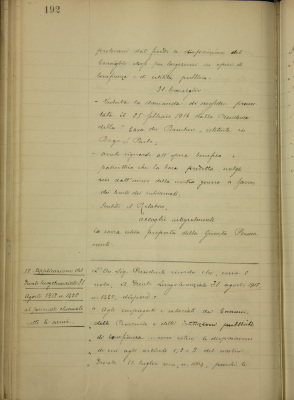 192
prelevarsi dal fondo a disposizione del
Consiglio stesso per largizioni in opere di
beneficenza e di utilità pubblica.
Il Consiglio
- Veduta la domanda di sussidio presen
tata il 25 febbraio 1916 dalla Presidenza
della " Casa dei Bambini, istituita in
Borgo S.
- Avuto riguardo all'opera benefica e
che la Casa predetta svolge
sin dall'inizio della nostra guerra a favore
dei figli dei richiamati;
Sentito il Relatore,
accoglie integralmente
la sovra estesa proposta della Giunta Munici
Applicazione del
Decreto Luogotenenziale 31
agosto 1915 n 1420
al personale chiamato
sotto le armi.
L'On. Sig. Presidente ricorda che, come è
noto, il Decreto Luogotenenziale 31 agosto 1915,
n 1420, dispone:
" Agli impiegati e salariati dei Comuni,
delle Provincie e delle Istituzioni pubbliche
di beneficenza sono estese le disposizioni
di cui agli articoli 1, 2 e 3 del nostro
Decreto luglio 1915, n 1064, purchè la